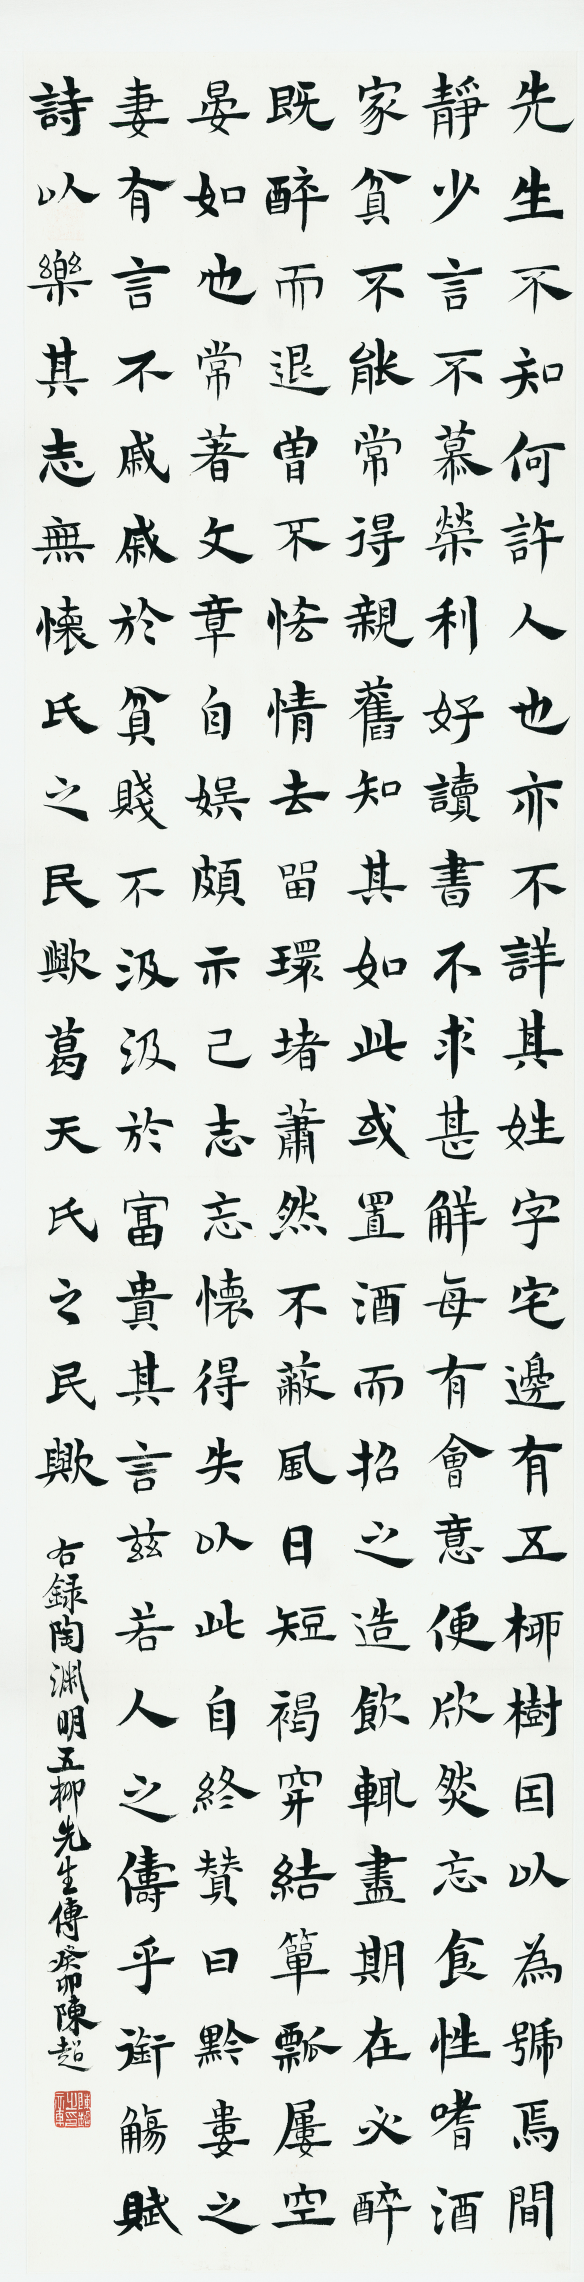 先生不知何許人也亦不詳其姓字宅邊有五柳樹因以為號焉閒
靜少言不慕榮利好讀書不求甚解每有會意便欣然忘食性嗜酒
家貧不能常得親舊知其如此或置酒而招之造飲輒盡期在必醉
既醉而退曾不悋情去留環堵蕭然不蔽風日短褐穿結簞瓢屢空
晏如也常著文章自娛頗示己志忘懷得失以此自終贊曰黔婁之
妻有言不戚戚於貧賤不汲汲於富貴其言茲若人之儔乎銜觴賦
詩以樂其志無懷氏之民歟葛天氏之民歟
右録陶淵明五柳先生傳癸卯陳超